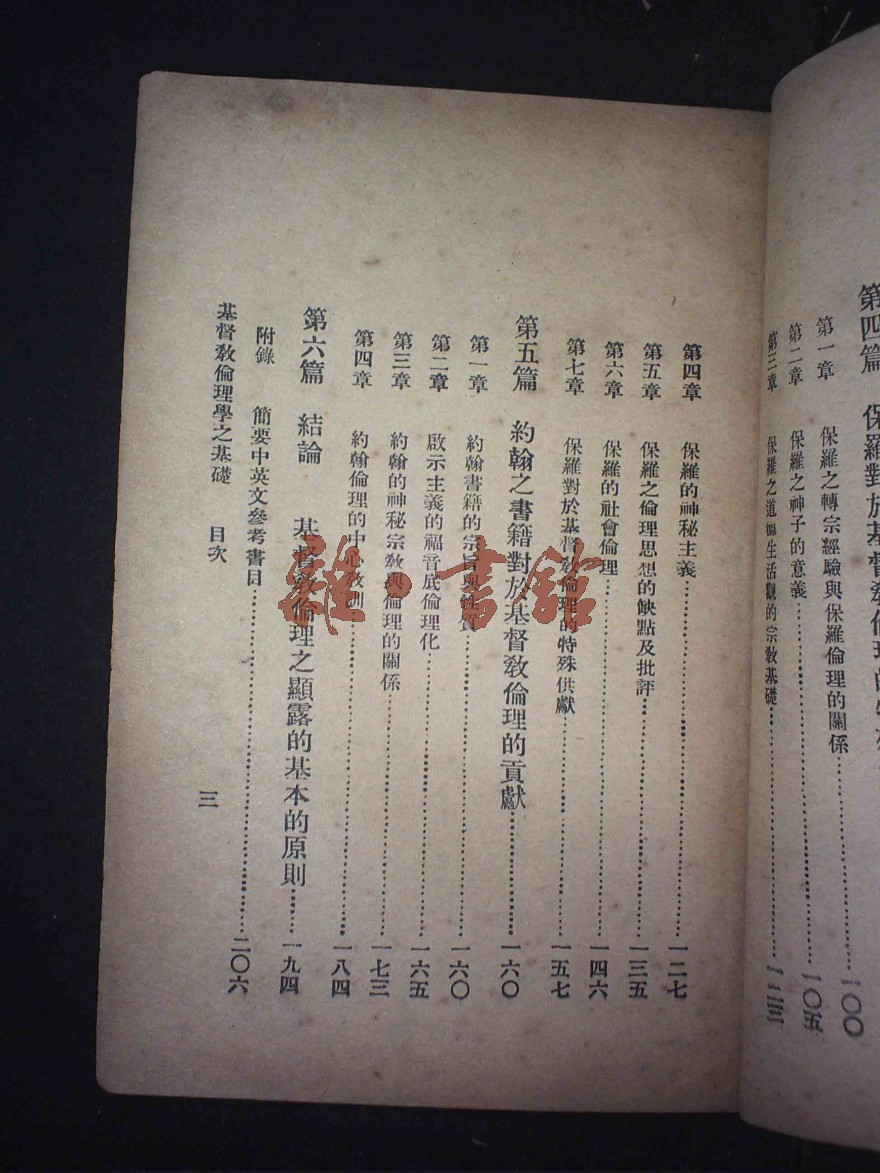 第四篇 保羅對於基督教倫理的
第一章 保羅之轉宗經驗與保羅倫理的關係……一〇〇
第二章 保羅之神子的意義……一〇五
第三章 保羅之道德生活觀的宗教基礎……
第四章 保羅的神秘主義……一二七
第五章 保羅之倫理思想的缺點及批評……一三五
第六章 保羅的社會倫理……一四六
第七章 保羅對於基督教倫理的特殊供獻……一五七
第五篇 約翰之書籍對於基督教倫理的貢獻……一六〇
第一章 約翰書籍的宗旨與性質……一六〇
第二章 啟示主義的福音底倫理化……一六五
第三章 約翰的神秘宗教與倫理的關係……一七三
第四章 約翰倫理的中心及……一八四
第六篇 結論 基督教倫理之顯露的基本的原則……一九四
附錄 簡要中英文參考書目……二〇六
基督教倫理學之基礎 目次 三
雜·書館